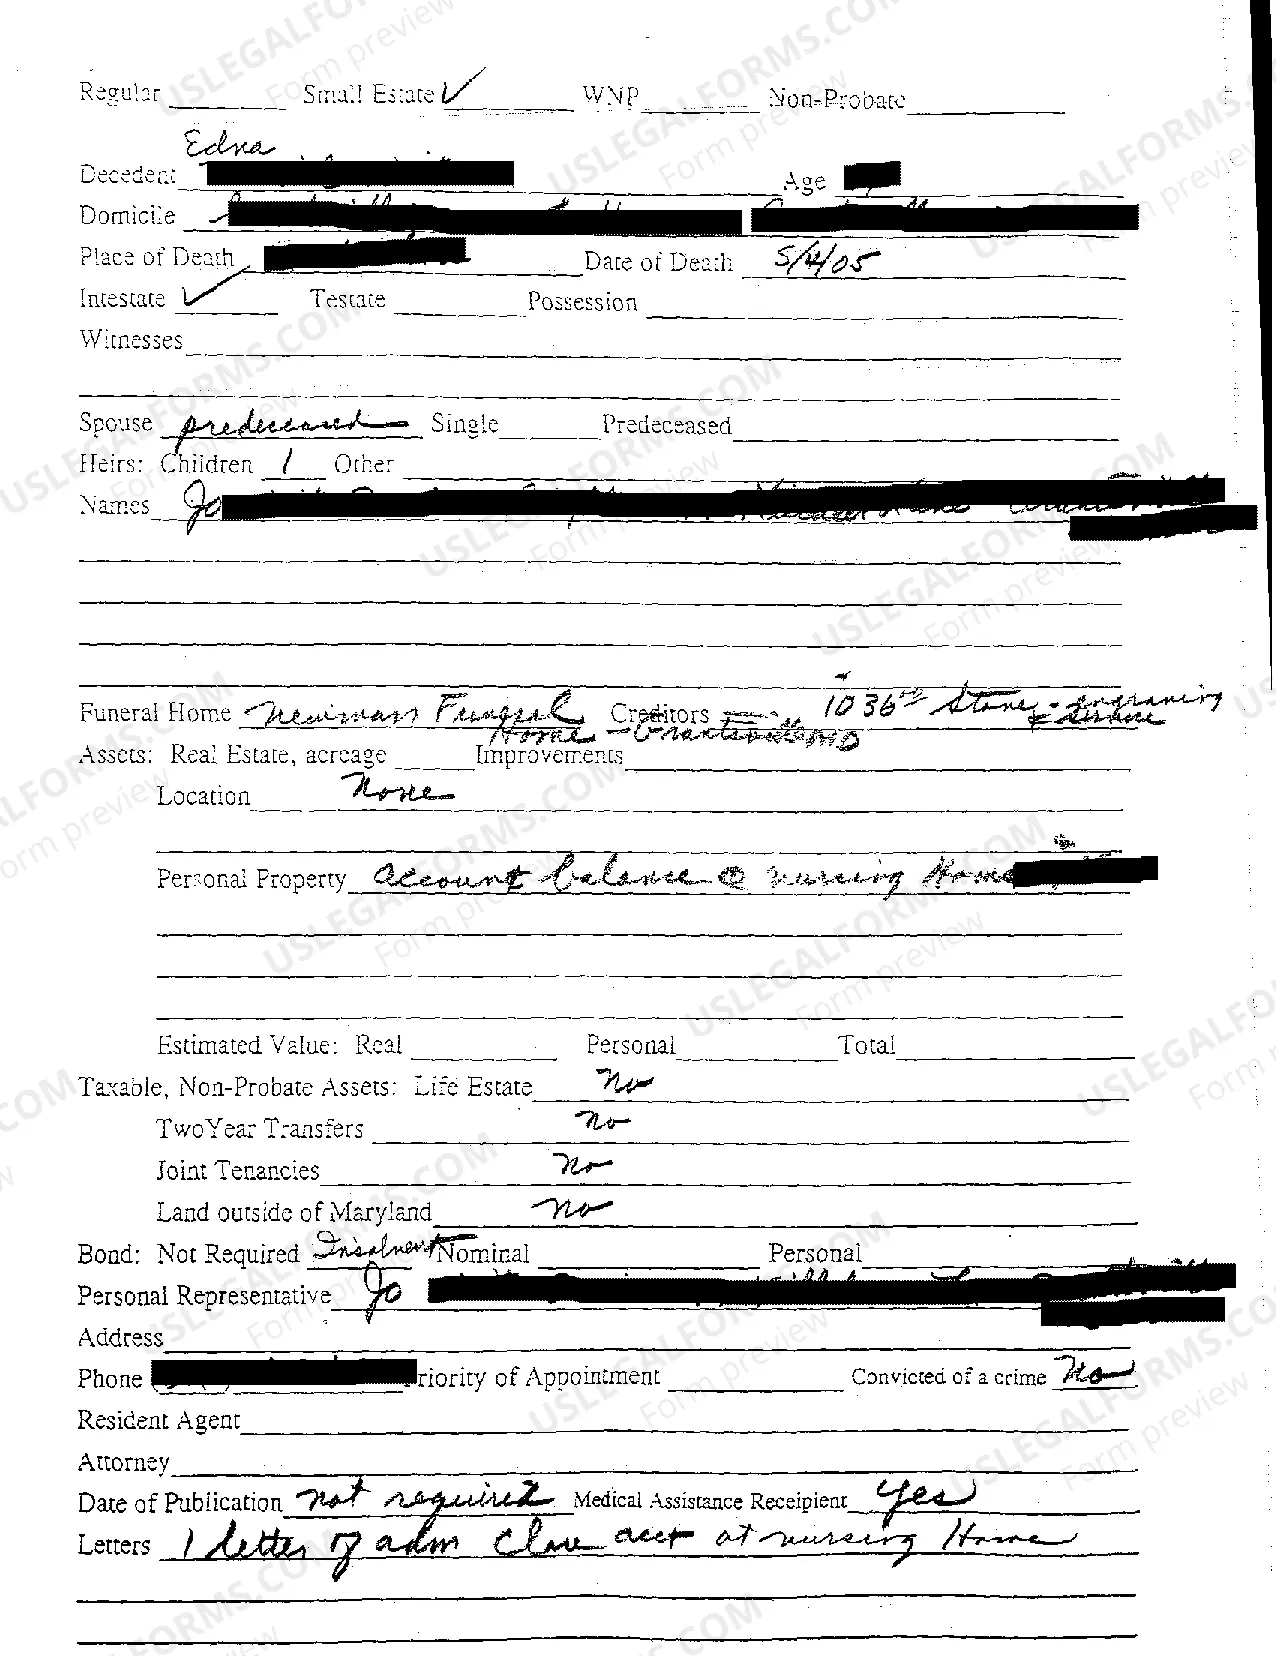 Regular Small Estate ✓ WNP Non-Probate
Edna
Decedent Age
Domicile
Place of Death Date of Death 5/4/05
Intestate ✓ Testate Possession
Witnesses
Spouse predeceased Single Predeceased
Heirs: Children 1 Other
Names Jo
Funeral Home Newman Funeral Creditors 1036.00 Stone - engraving
Home - Grantsville MD
Assets: Real Estate, acreage Improvements
Location None
Personal Property account balance @ nursing Home
Estimated Value: Real Personal Total
Taxable, Non-Probate Assets: Life Estate No
TwoYear Transfers No
Joint Tenancies No
Land outside of Maryland No
Bond: Not Required Insolvent Nominal Personal
Personal Representative Jo
Address
Phone riority of Appointment Convicted of a crime No
Resident Agent
Attorney
Date of Publication not required Medical Assistance Receipient yes
Letters 1 letter of adm Close acct at nursing Home
USLEGALFORMS.COM
Form preview